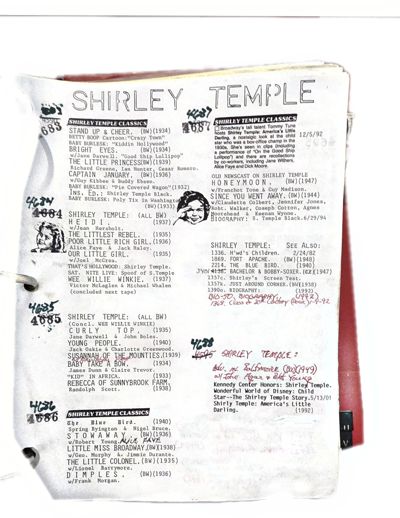 SHIRLEY TEMPLE
4683
SHIRLEY TEMPLE CLASSICS
STAND UP & CHEER. (BW)(1934)
BETTY BOOP Cartoon:"Crazy Town"
BABY BURLESK: "Kiddin Hollywood"
BRIGHT EYES. (BW)(1934)
w/Jane Darwell. "Good Ship Lollipop"
THE LITTLE PRINCESS (1939)
Richard Greene, Ian Hunter, Cesar Romero.
CAPTAIN JANUARY. (BW)(1936)
w/Guy Kibbee & Buddy Ebsen
BABY BURLESK: "Pie Covered Wagon"(1932)
Ins. Ed.: Shirley Temple Black,
BABY BURLESK: Poly Tix in Washington
(BW)(1933)
4684
4684
SHIRLEY TEMPLE: (ALL BW)
HEIDI. (1937)
w/Jean Hersholt.
THE LITTLEST REBEL. (1935)
POOR LITTLE RICH GIRL.(1936)
Alice Faye & Jack Haley.
OUR LITTLE GIRL. (1935)
w/Joel McCrea.
THAT'S HOLLYWOOD: Shirley Temple.
SAT. NITE LIVE: Spoof of S.Temple
WEE WILLIE WINKIE. (1937)
Victor McLaglen & Michael Whalen
(concluded next tape)
4685
4685
SHIRLEY TEMPLE: (ALL BW)
(Concl. WEE WILLIE WINKIE)
CURLY TOP. (1935)
Jane Darwell & John Boles.
YOUNG PEOPLE. (1940)
Jack Oakie & Charlotte Greenwood.
SUSANNAH OF THE MOUNTIES.(1939)
BABY TAKE A BOW. (1934)
James Dunn & Claire Trevor.
"KID" IN AFRICA. (1933)
REBECCA OF SUNNYBROOK FARM.
Randolph Scott. (1938)
4686
4686
SHIRLEY TEMPLE CLASSICS
The Blue Bird. (1940)
Spring Byington & Nigel Bruce.
STOWAWAY. (BW)(1936)
w/Robert Young. ALICE FAYE
LITTLE MISS BROADWAY.(BW)(1938)
w/Geo. Murphy & Jimmie Durante.
THE LITTLE COLONEL.(BW)(1935)
w/Lionel Barrymore.
DIMPLES. (BW)(1936)
w/Frank Morgan.
4687
4687
SHIRLEY TEMPLE CLASSICS
Broadway's tall talent Tommy Tune
hosts Shirley Temple: America's Little
Darling, a nostalgic look at the child
star who was a box-office champ in the
1930s. She's seen in clips (including
a performance of "On the Good Ship
Lollipop") and there are recollections
by co-workers, including Jane Withers,
Alice Faye and Dick Moore.
12/5/92
OLD NEWSCAST ON SHIRLEY TEMPLE
HONEYMOON. (BW)(1947)
w/Franchot Tone & Guy Madison.
SINCE YOU WENT AWAY.(BW)(1944)
w/Claudette Colbert, Jennifer Jones,
Robt. Walker, Joseph Cotton, Agnes
Moorehead & Keenan Wynne.
BIOGRAPHY: S. Temple Black.6/29/94
SHIRLEY TEMPLE: SEE ALSO:
1336. H'wd's Children. 2/24/82
1869. FORT APACHE. (BW)(1948)
2214. THE BLUE BIRD. (1940)
BACHELOR & BOBBY-SOXER.(1947)
1357c. Shirley's Screen Test.
1357k. JUST AROUND CORNER.(BW)(1938)
1390o. BIOGRAPHY: (1992)
4688
SHIRLEY TEMPLE:
Kennedy Center Honors: Shirley Temple.
Wonderful World of Disney: Child
Star--The Shirley Temple Story.5/13/01
Shirley Temple: America's Little
Darling. (1992)